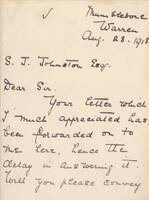 Warren
Aug. 28. 1918
S. J. Johnston Esq.
Dear Sir.
Your letter which
I much appreciated has
been forwarded on to
me here, hence the
delay in answering it.
Will you please convey